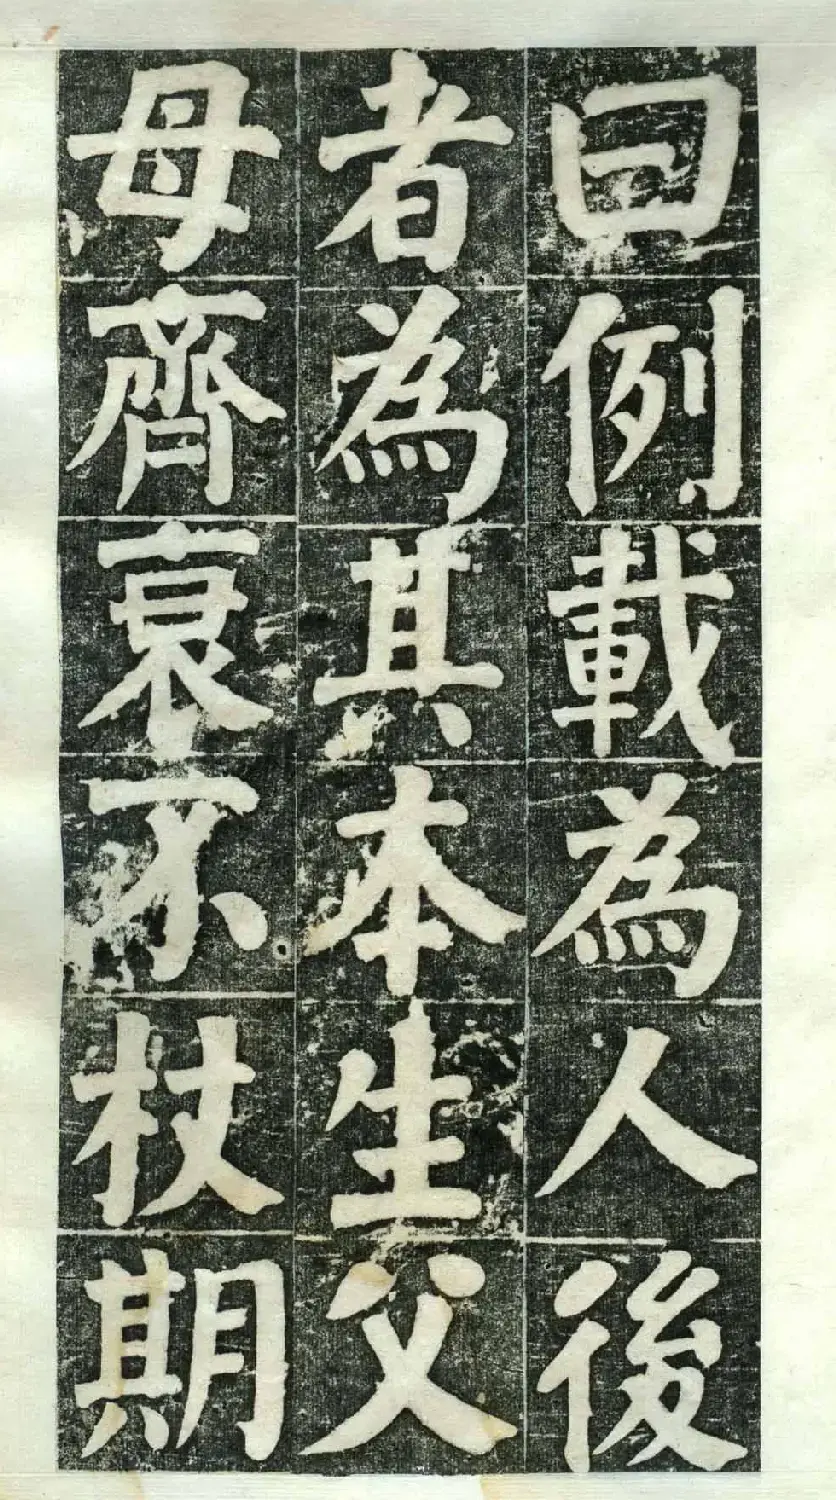 曰例載為人後
者為其本生父
母齊衰不杖期